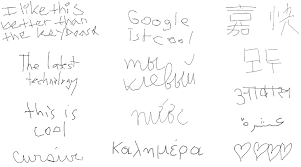 I like this
better than
the keyboard
The latest
technology
this is
cool
cursive
Google
ist cool
ты
клевый
nước
καλημέρα
嘉 快
모두
عشرة
♡♡♡♡